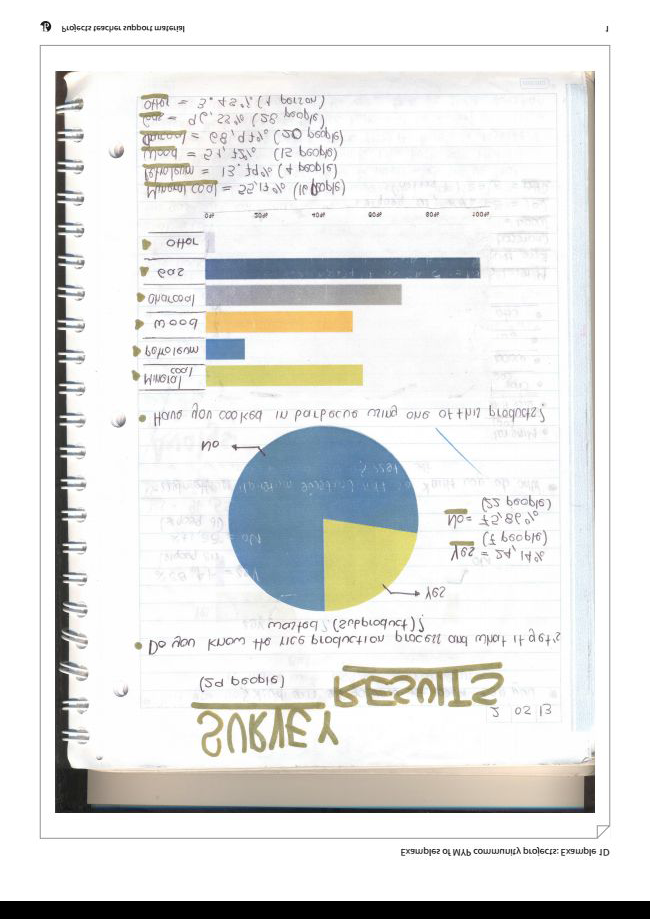 Examples of MYP community projects: Example 1D
2 05 13
SURVEY RESULTS
(29 people)
• Do you know the rice production process and what it get's
wasted? (subproduct)?
Yes
Yes = 24,14%
(7 people)
No = 75,86%
(22 people)
No
• Have you cooked in barbecue using one of this products?
Mineral coal
Petroleum
Wood
Charcoal
Gas
Other
0% 20% 40% 60% 80% 100%
Mineral coal = 55,17% (16 people)
Petroleum = 13.79% (4 people)
Wood = 51,72% (15 people)
Charcoal = 68,97% (20 people)
Gas = 96,55% (28 people)
Other = 3.45% (1 person)
Projects teacher support material
1